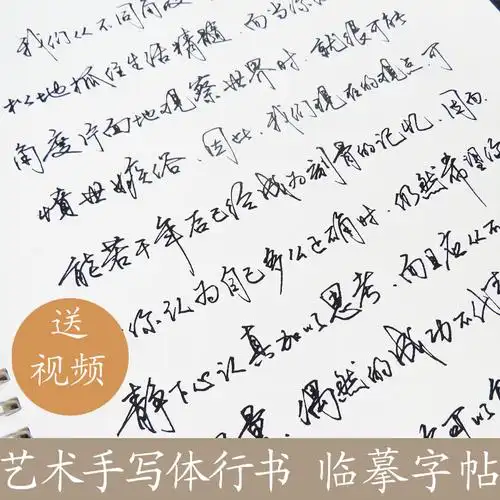 我们从不同角度
地抓住生活精髓，而当你
角度片面地观察世界时，就很可能
愤世嫉俗。因此，我们现在的观点，可
能若干年后已经成为刻骨的记忆，因而
你认为自己多么正确时，仍然希望你
静下心认真加以思考，而且应从不
量，偶然的成功不代表
可以
送
视频
艺术手写体行书 临摹字帖